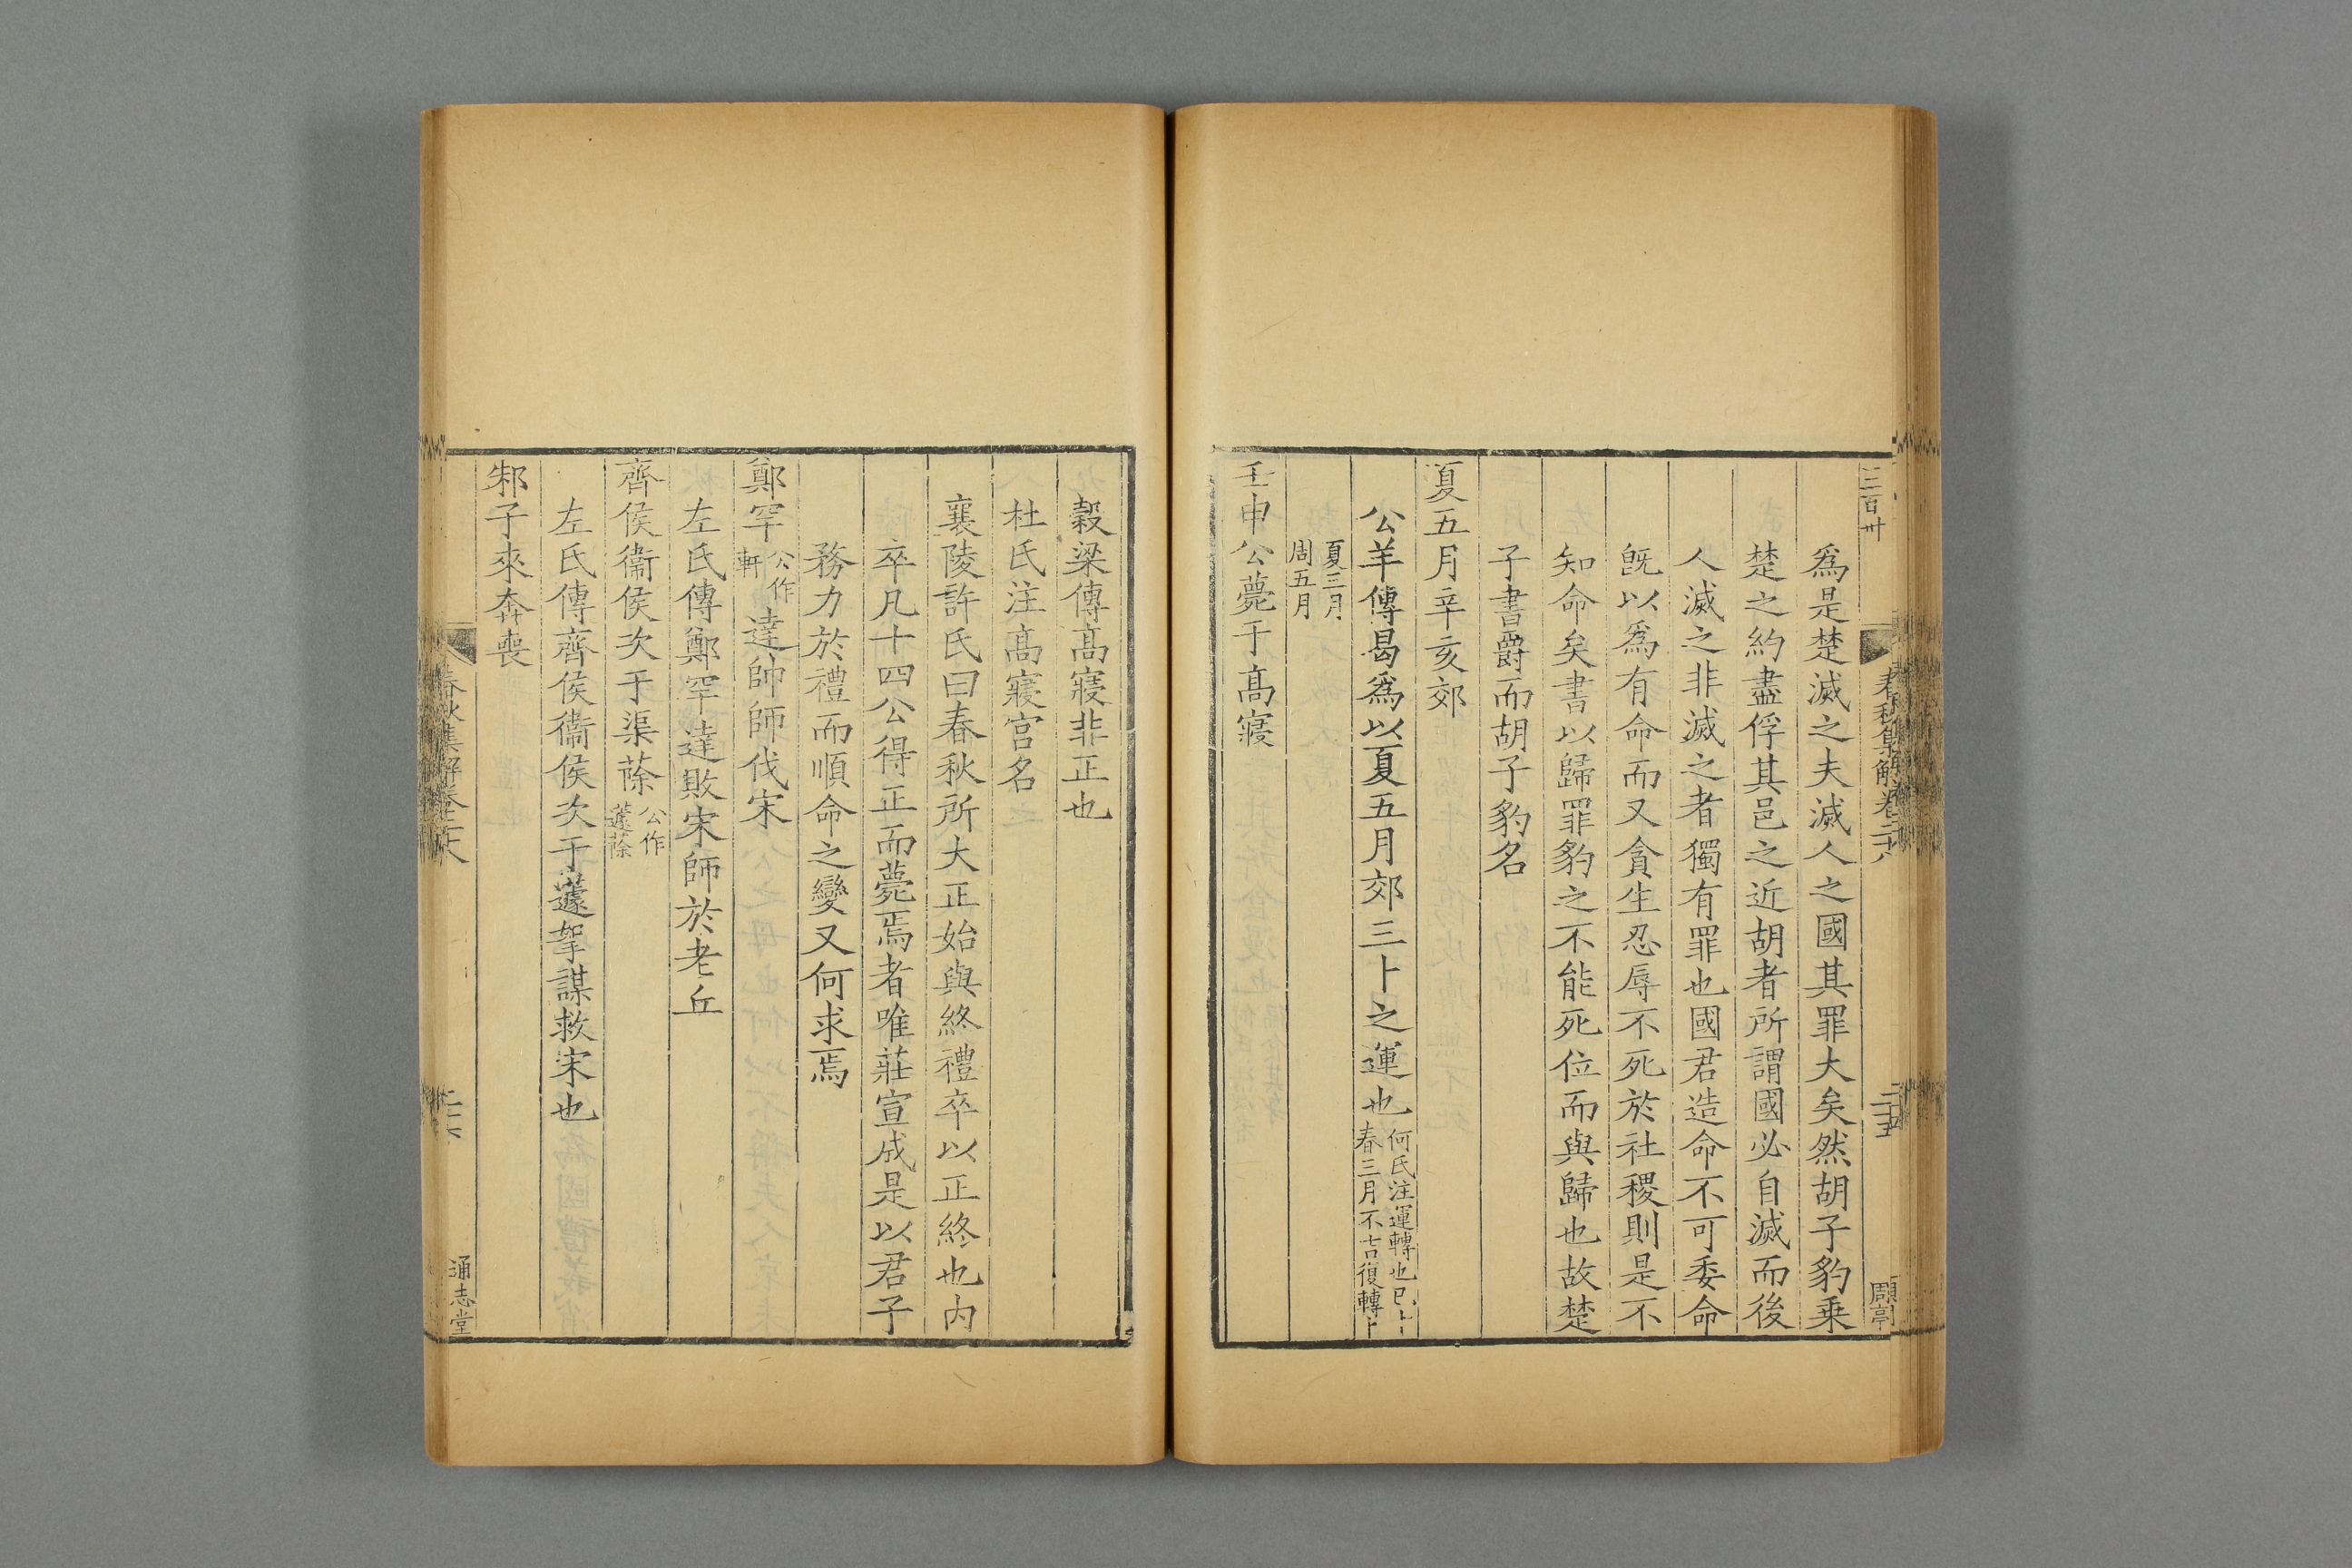 三百卅
春秋集解卷二十八
二十五
顧亭
爲是楚滅之夫滅人之國其罪大矣然胡子豹乗
楚之約盡俘其邑之近胡者所謂國必自滅而後
人滅之非滅之者獨有罪也國君造命不可委命
旣以爲有命而又貪生忍辱不死於社稷則是不
知命矣書以歸罪豹之不能死位而與歸也故楚
子書爵而胡子豹名
夏五月辛亥郊
公羊傳曷爲以夏五月郊三卜之運也何氏注運轉也已卜春三月不吉復轉卜
夏三月周五月
壬申公薨于髙寢
穀梁傳髙寢非正也
杜氏注髙寢宮名
襄陵許氏曰春秋所大正始與終禮卒以正終也内
卒凡十四公得正而薨焉者唯莊宣成是以君子
務力於禮而順命之變又何求焉
鄭罕公作軒達帥師伐宋
左氏傳鄭罕達敗宋師於老丘
齊侯衞侯次于渠蒢公作蘧蒢
左氏傳齊侯衞侯次于蘧挐謀救宋也
邾子來奔喪
春秋集解卷二十八
通志堂